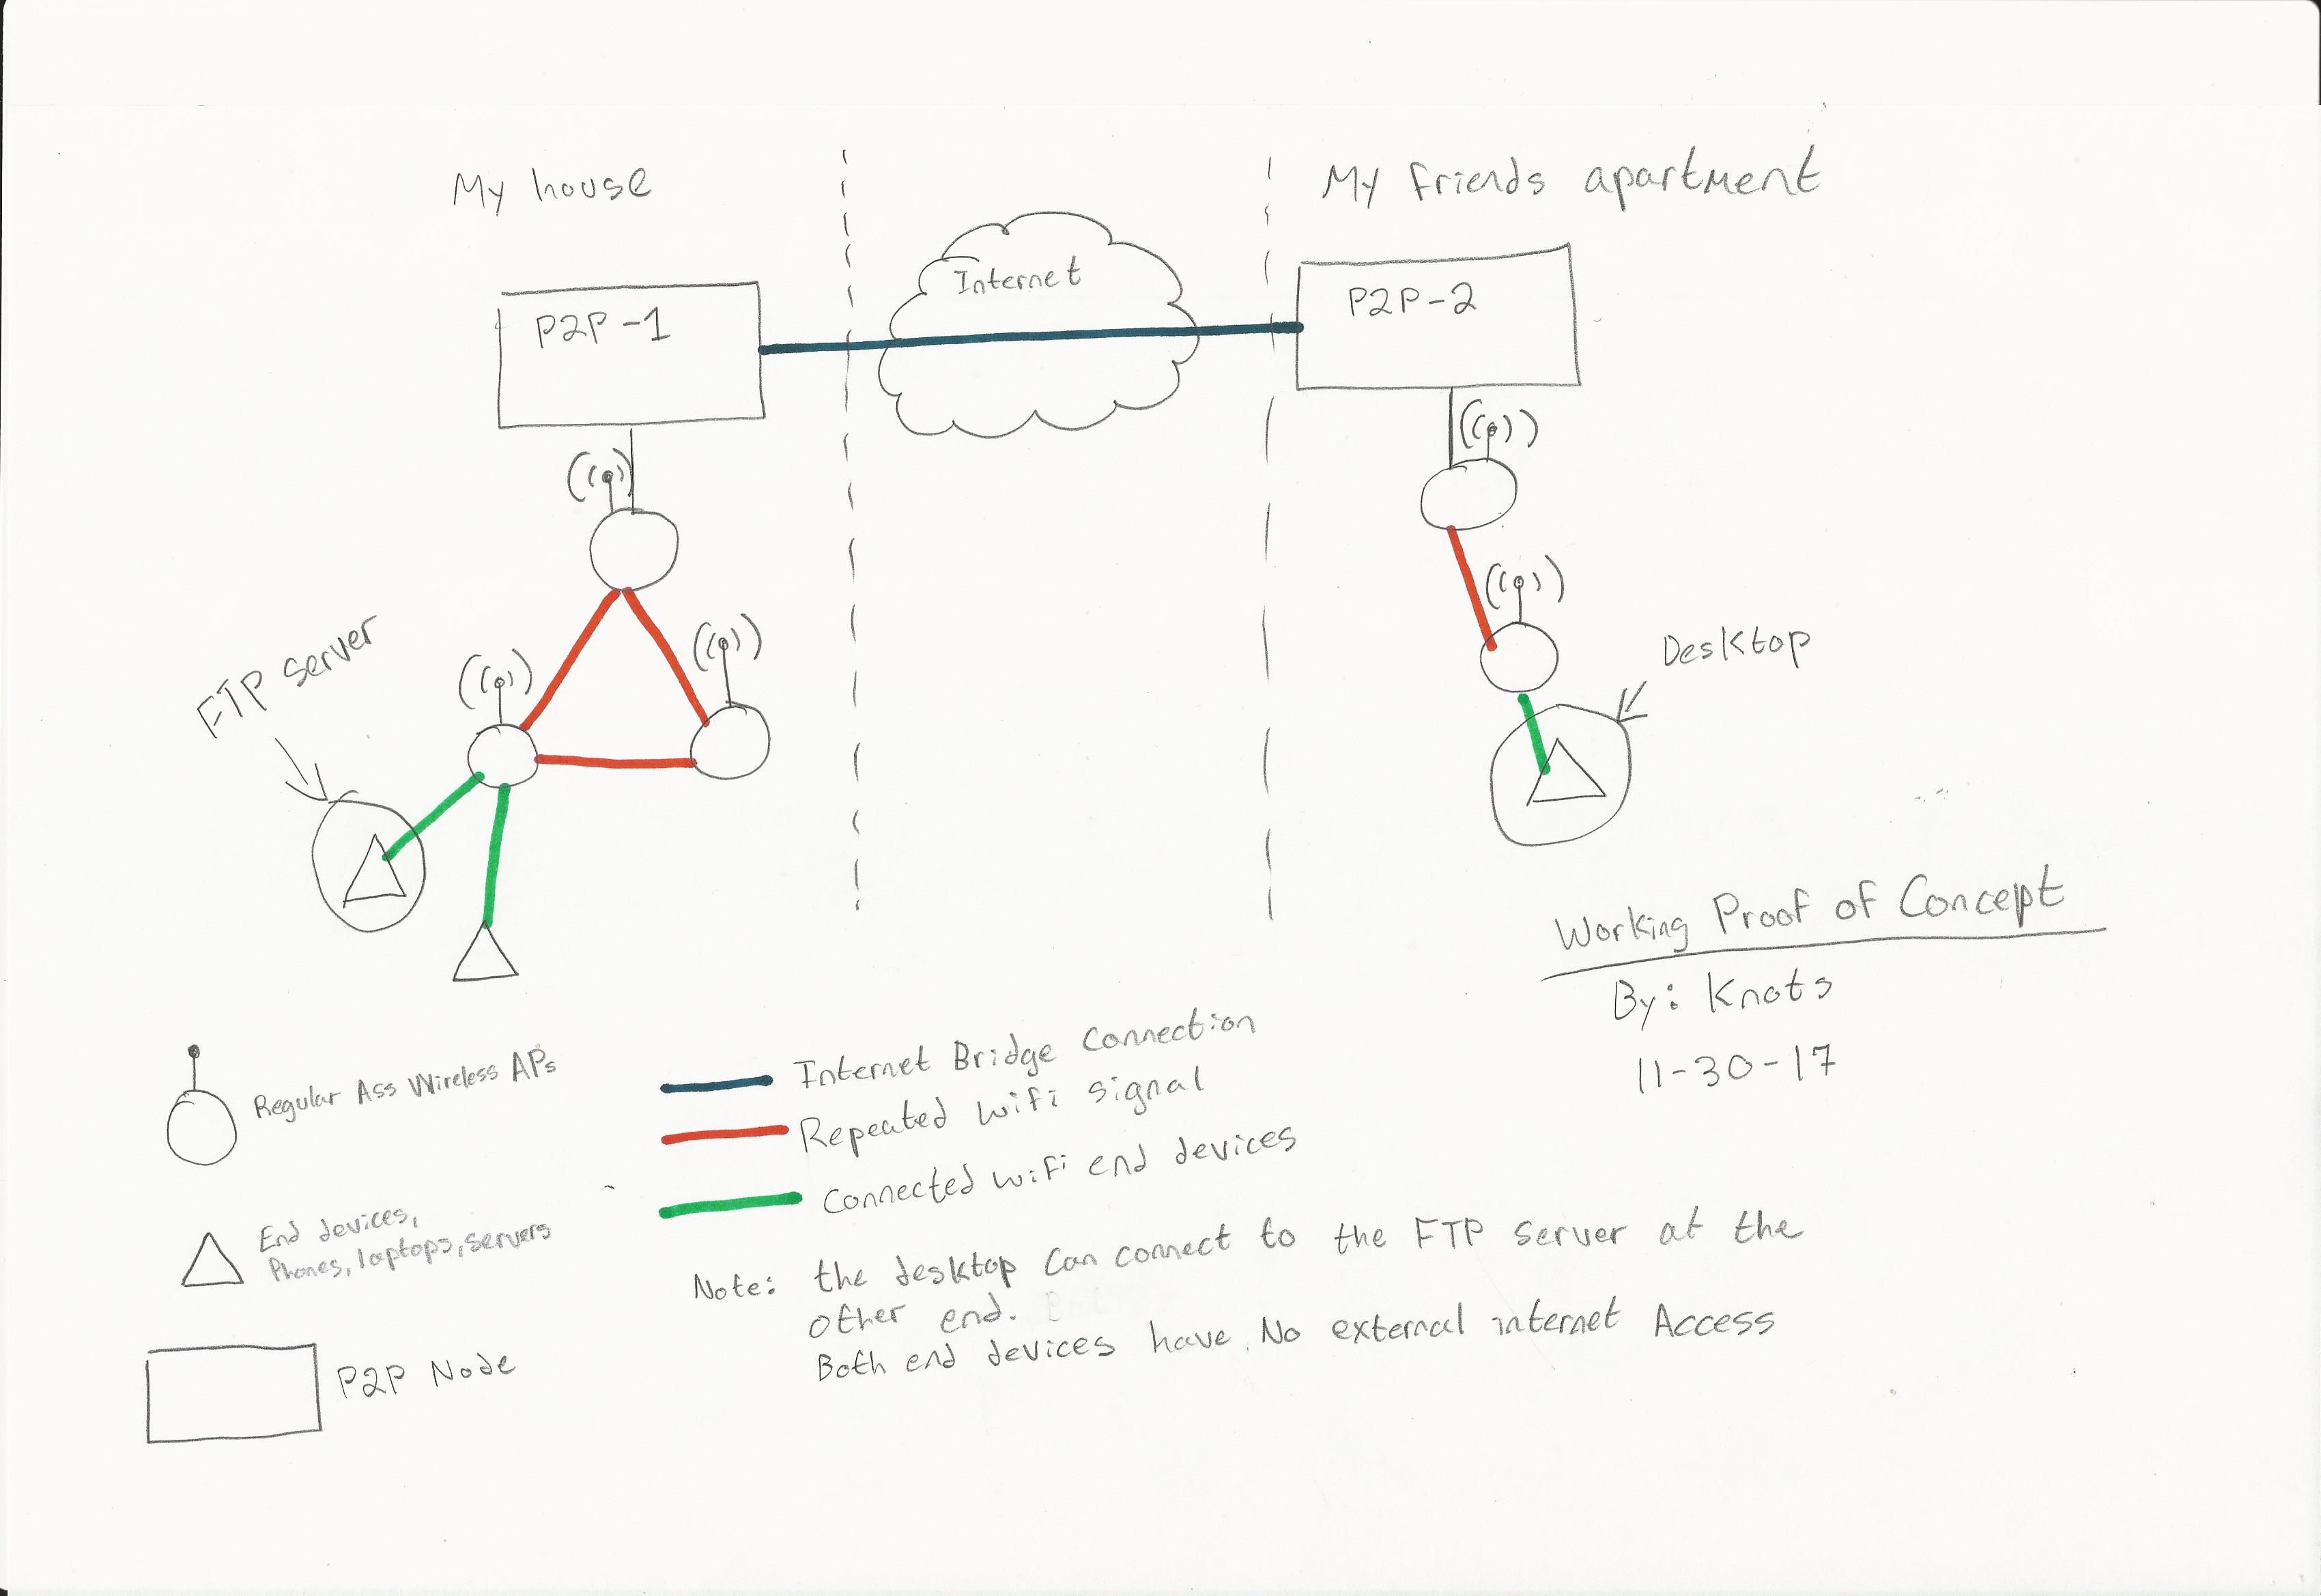 My house
My friends apartment
Internet
P2P-1
P2P-2
FTP server
Desktop
Working Proof of Concept
By: Knots
11-30-17
Regular Ass Wireless APs
End devices,
Phones, laptops, servers
P2P Node
Internet Bridge Connection
Repeated wifi signal
Connected wifi end devices
Note: the desktop can connect to the FTP server at the
other end.
Both end devices have No external internet Access